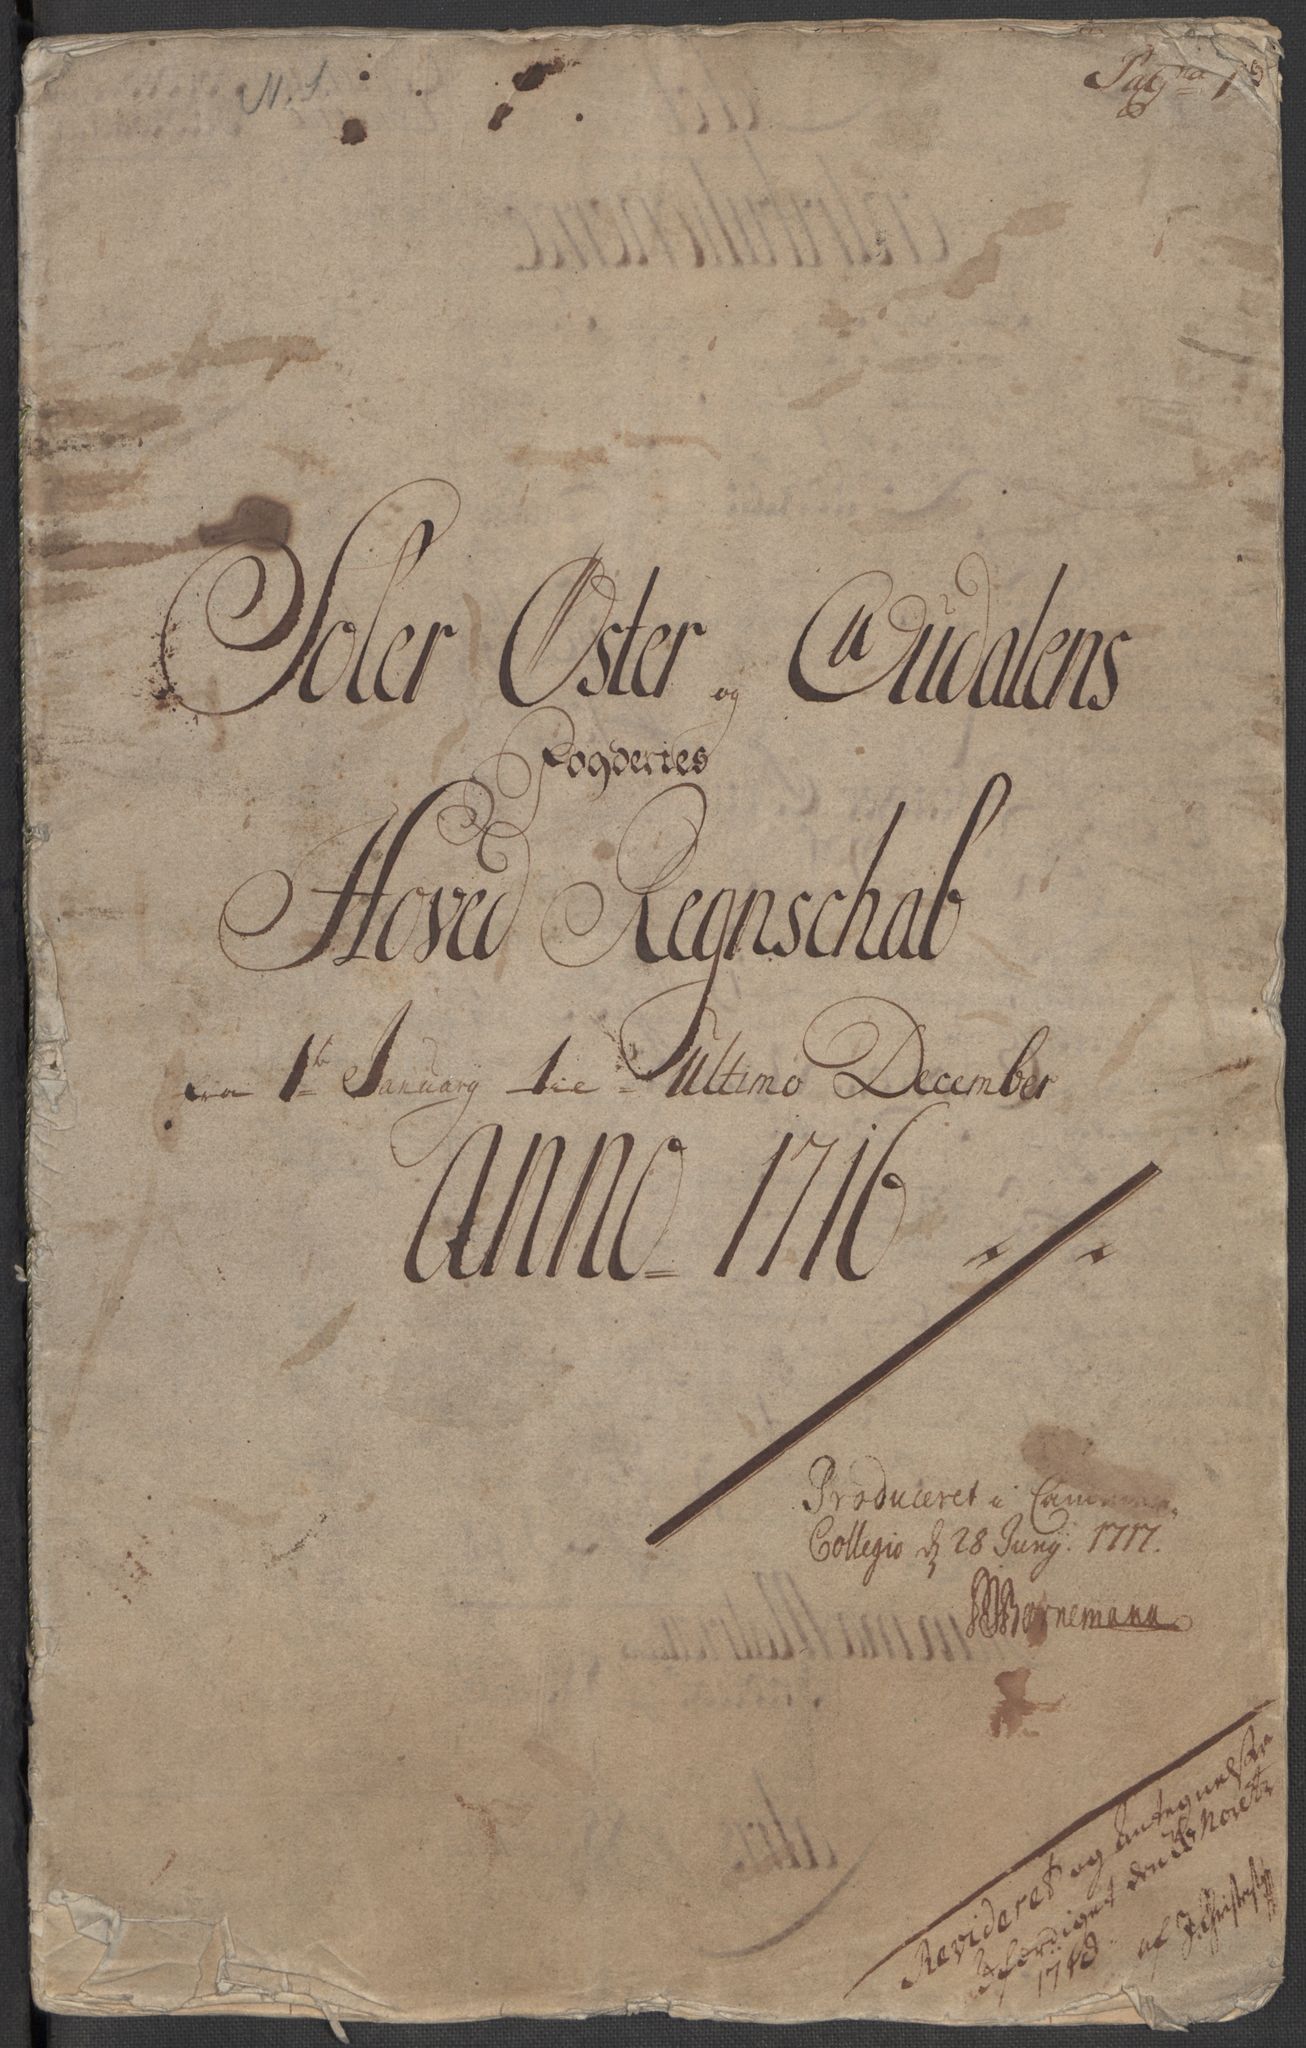 N. 1
Pag: na 1
Soler Øster og Oudalens
Fogderies
Hoved Regnschab
fra 1te January til Ultimo December
Anno 1716
Produceret i Cammer
Collegio d 28 Juny. 1717.
Bornemann
Revideret og Antegnelser
forferdiget den Novembr
af J. Christ